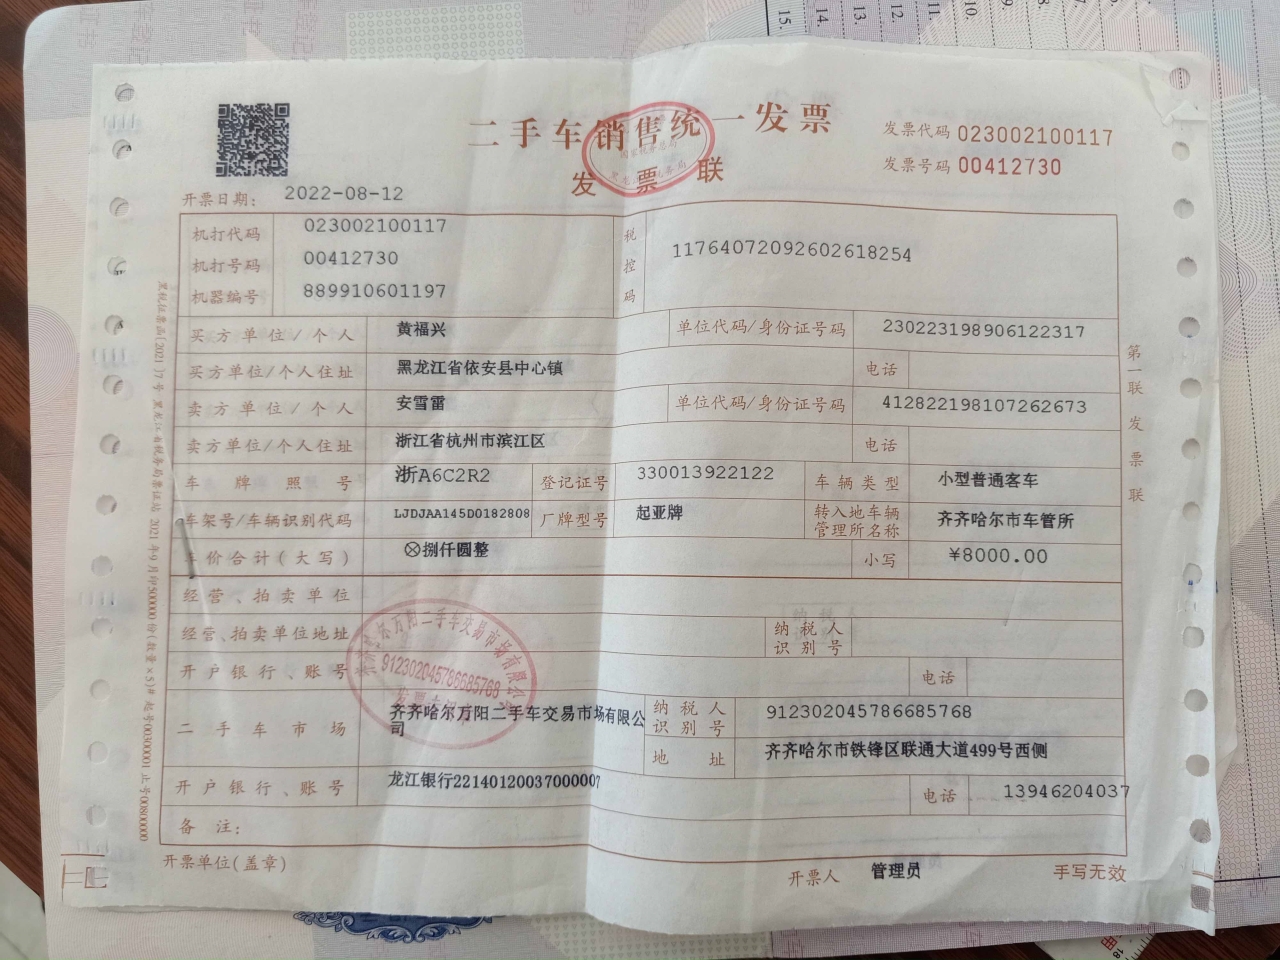 二手车销售统一发票
发票联
发票代码 023002100117
发票号码 00412730
开票日期： 2022-08-12
机打代码 023002100117
机打号码 00412730
机器编号 889910601197
税控码 11764072092602618254
买方单位/个人 黄福兴 单位代码/身份证号码 230223198906122317
买方单位/个人住址 黑龙江省依安县中心镇 电话
卖方单位/个人 安雪雷 单位代码/身份证号码 412822198107262673
卖方单位/个人住址 浙江省杭州市滨江区 电话
车牌照号 浙A6C2R2 登记证号 330013922122 车辆类型 小型普通客车
车架号/车辆识别代码 LJDJAA145D0182808 厂牌型号 起亚牌 转入地车辆管理所名称 齐齐哈尔市车管所
车价合计(大写) ⊗捌仟圆整 小写 ¥8000.00
经营、拍卖单位
经营、拍卖单位地址 纳税人识别号
开户银行、账号 电话
二手车市场 齐齐哈尔万阳二手车交易市场有限公司 纳税人识别号 912302045786685768
地址 齐齐哈尔市铁锋区联通大道499号西侧
开户银行、账号 龙江银行22140120037000007 电话 13946204037
备注：
开票单位(盖章) 开票人 管理员 手写无效
第一联 发票联
黑税征票函[2021]7号 黑龙江省税务局票证站 2021年9月印500000份(数量×5)# 起号00300001 止号00800000
912302045786685768
15.
14.
13.
12.
11.
10.